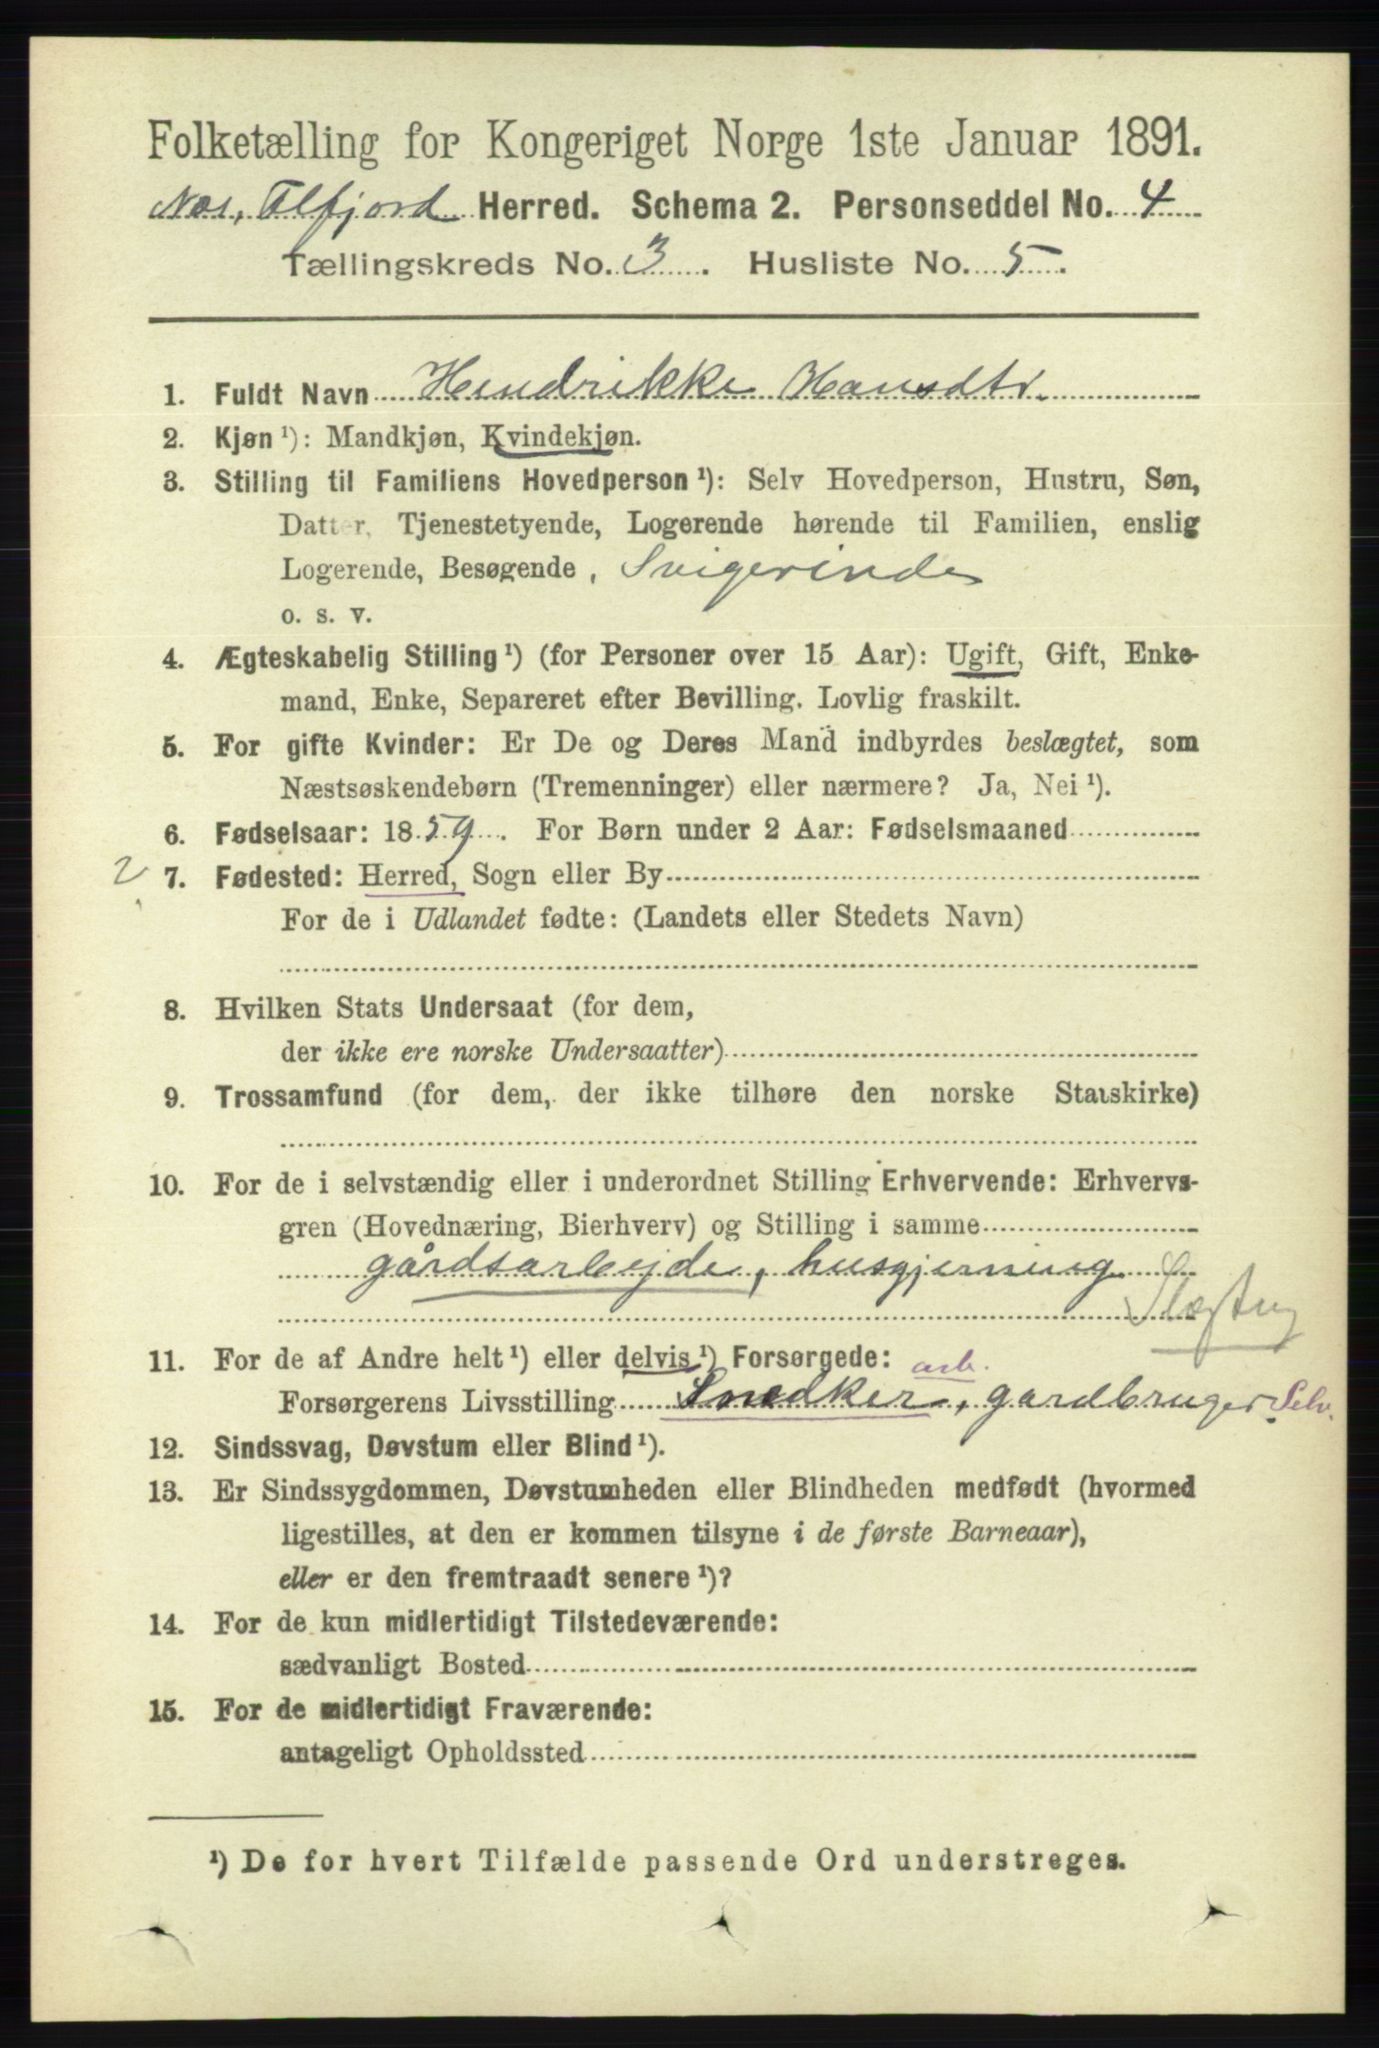 Folketælling for Kongeriget Norge 1ste Januar 1891.
Herred. Schema 2. Personseddel No. 4
Tællingskreds No. 3. Husliste No. 5.
1. Fuldt Navn Hendrikke Hansdtr.
2. Kjøn ¹): Mandkjøn, Kvindekjøn.
3. Stilling til Familiens Hovedperson ¹): Selv Hovedperson, Hustru, Søn,
Datter, Tjenestetyende, Logerende hørende til Familien, enslig
Logerende, Besøgende, Svigerinde
o. s. v.
4. Ægteskabelig Stilling ¹) (for Personer over 15 Aar): Ugift, Gift, Enke-
mand, Enke, Separeret efter Bevilling. Lovlig fraskilt.
5. For gifte Kvinder: Er De og Deres Mand indbyrdes beslægtet, som
Næstsøskendebørn (Tremenninger) eller nærmere? Ja, Nei ¹).
6. Fødselsaar: 1859. For Børn under 2 Aar: Fødselsmaaned
2 7. Fødested: Herred, Sogn eller By
For de i Udlandet fødte: (Landets eller Stedets Navn)
8. Hvilken Stats Undersaat (for dem,
der ikke ere norske Undersaatter)
9. Trossamfund (for dem, der ikke tilhøre den norske Statskirke)
10. For de i selvstændig eller i underordnet Stilling Erhvervende: Erhvervs-
gren (Hovednæring, Bierhverv) og Stilling i samme
gårdsarbejde, husgjerning
11. For de af Andre helt ¹) eller delvis ¹) Forsørgede: arb.
Forsørgerens Livsstilling Snedker, gardbruger Selv.
12. Sindssvag, Døvstum eller Blind ¹).
13. Er Sindssygdommen, Døvstumheden eller Blindheden medfødt (hvormed
ligestilles, at den er kommen tilsyne i de første Barneaar),
eller er den fremtraadt senere ¹)?
14. For de kun midlertidigt Tilstedeværende:
sædvanligt Bosted
15. For de midlertidigt Fraværende:
antageligt Opholdssted
¹) De for hvert Tilfælde passende Ord understreges.